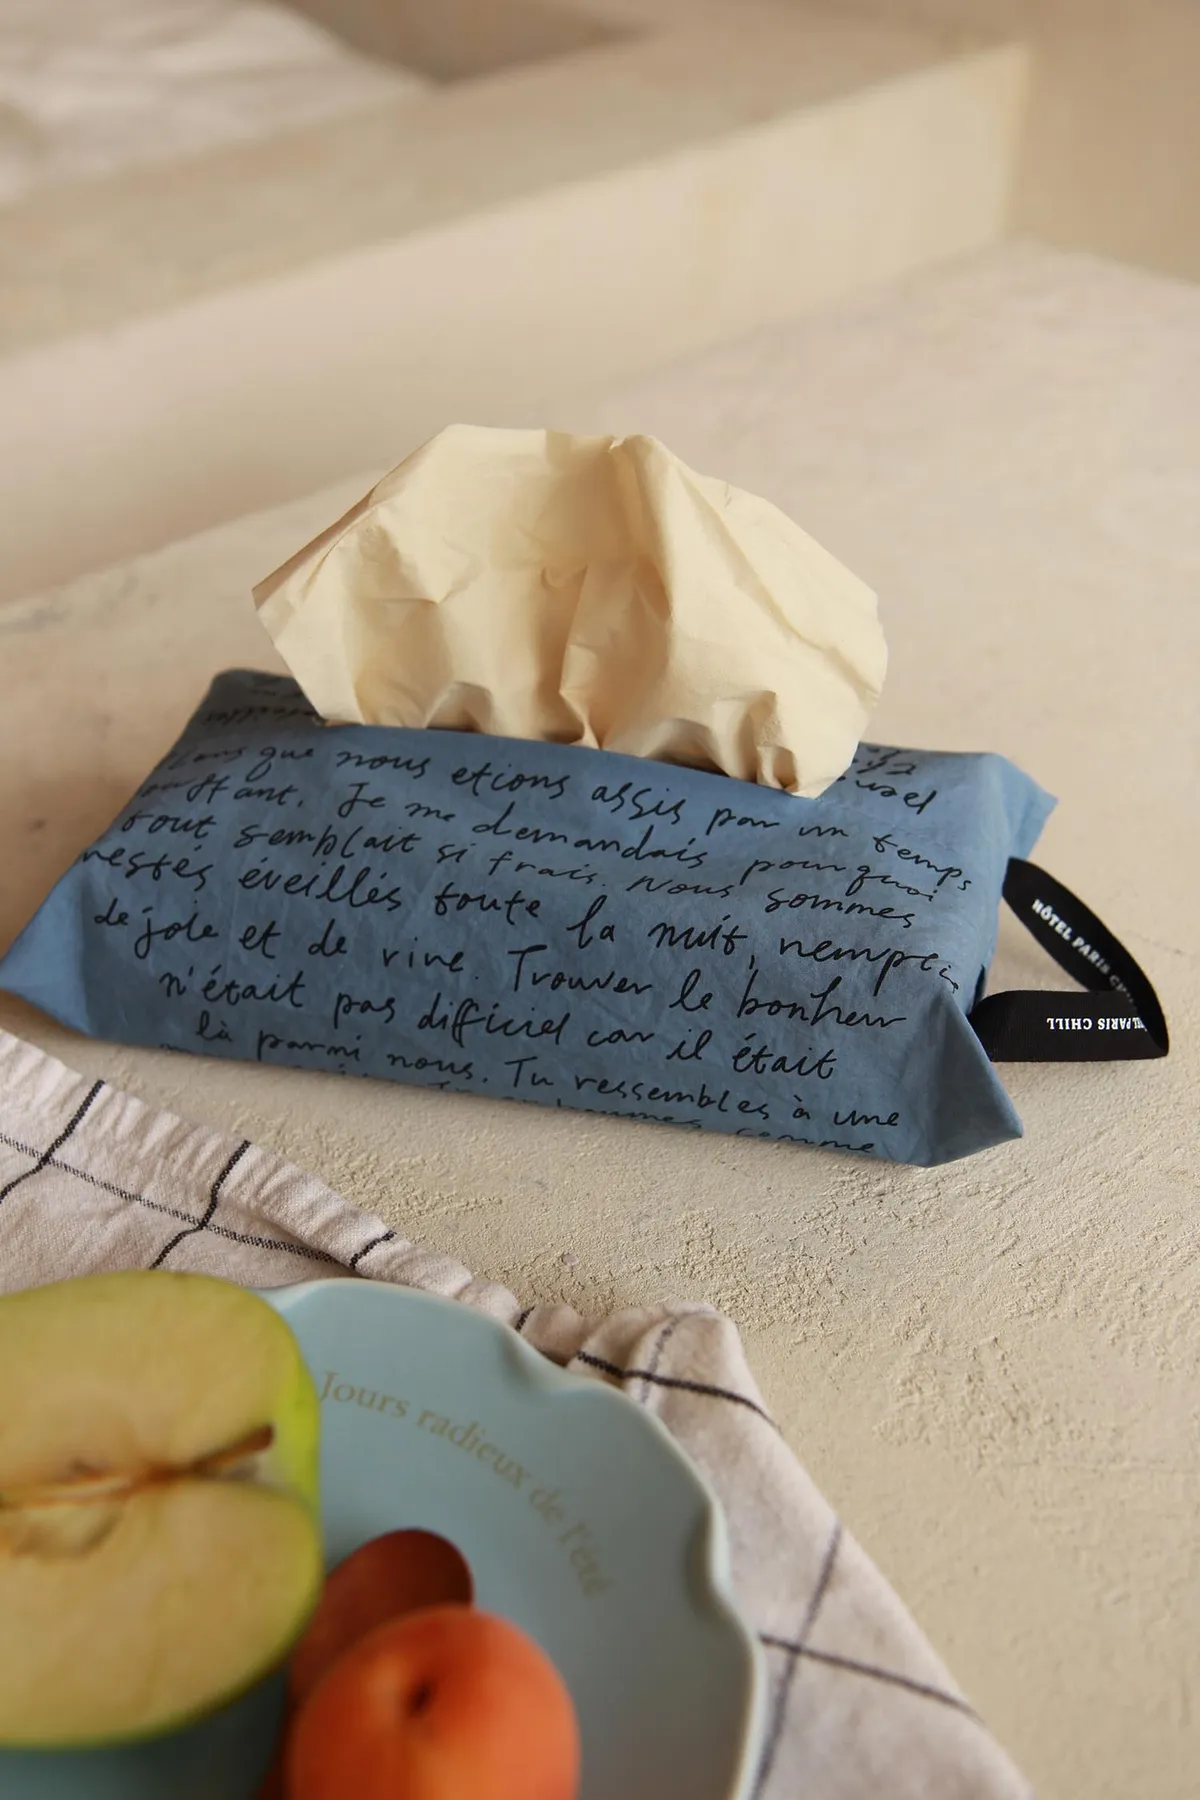 que nous etions assis par un temps
Je me demandais pourquoi
tout semblait si frais. Nous sommes
restés éveillés toute la nuit, remplis
de joie et de rire. Trouver le bonheur
n'était pas difficiel car il était
là parmi nous. Tu ressembles à une
comme
HÔTEL PARIS CHILL
PARIS CHILL
Jours radieux de l'été